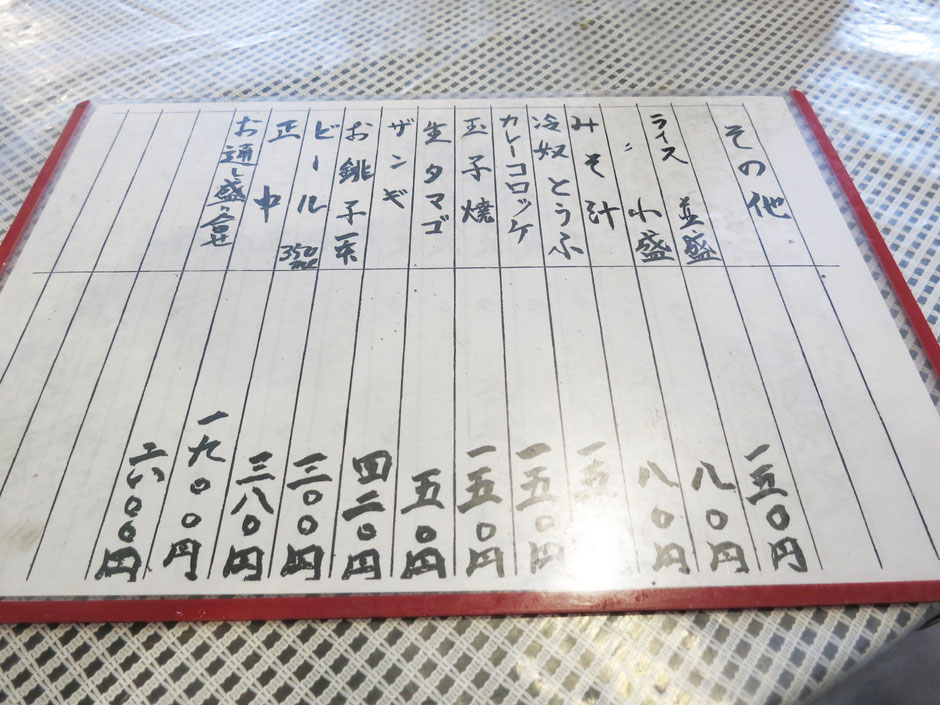 その他
ライス 並盛 一五〇円
〃 小盛 八〇円
みそ汁 八〇円
冷奴とうふ 一五
カレーコロッケ 一五〇円
玉子焼 一五〇円
生タマゴ 五〇円
ザンギ 四二〇円
お銚子一本 三〇〇円
ビール 350ml 三八〇円
正中 一九〇〇円
お通し盛り合せ 二六〇〇円